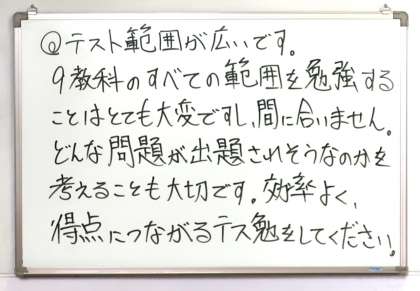 ◎テスト範囲が広いです。
9教科のすべての範囲を勉強する
ことはとても大変ですし、間に合いません。
どんな問題が出題されそうなのかを
考えることも大切です。効率よく、
得点につながるテス勉をしてください。